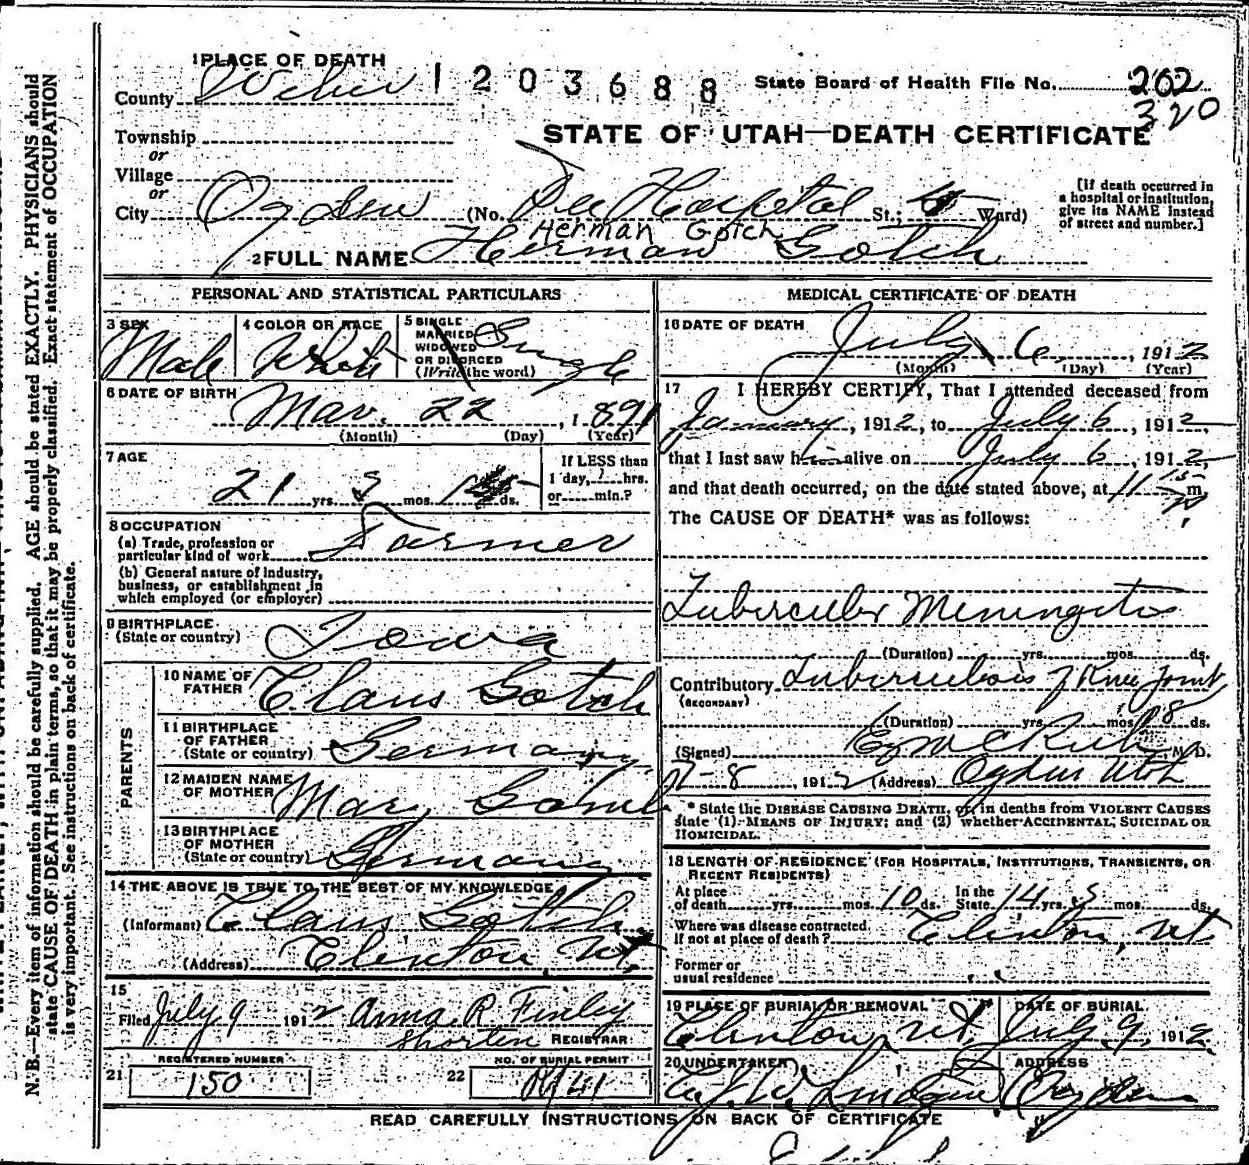 1 PLACE OF DEATH
1203688
State Board of Health File No. 202
320
County Weber
Township
or
Village
or
City Ogden
STATE OF UTAH—DEATH CERTIFICATE
(No. Dee Hospital St.; Ward)
[If death occurred in
a hospital or institution,
give its NAME instead
of street and number.]
Herman Gotch
2 FULL NAME Herman Gotch
PERSONAL AND STATISTICAL PARTICULARS
3 SEX Male
4 COLOR OR RACE White
5 SINGLE
MARRIED
WIDOWED
OR DIVORCED
(Write the word) Single
6 DATE OF BIRTH Mar. 22, 1891
(Month) (Day) (Year)
7 AGE
21 yrs. 3 mos. ds.
If LESS than
1 day, ? hrs.
or min.?
8 OCCUPATION
(a) Trade, profession or
particular kind of work Farmer
(b) General nature of industry,
business, or establishment in
which employed (or employer)
9 BIRTHPLACE
(State or country) Iowa
PARENTS
10 NAME OF
FATHER Claus Gotch
11 BIRTHPLACE
OF FATHER
(State or country) Germany
12 MAIDEN NAME
OF MOTHER Mary
13 BIRTHPLACE
OF MOTHER
(State or country) Germany
14 THE ABOVE IS TRUE TO THE BEST OF MY KNOWLEDGE
(Informant) Claus Gotch
(Address) Clinton, Ut,
15
Filed July 9 1912 Anna R Finley
Shorten REGISTRAR
REGISTERED NUMBER
21 150
NO. OF BURIAL PERMIT
22
MEDICAL CERTIFICATE OF DEATH
16 DATE OF DEATH July 6, 1912
(Month) (Day) (Year)
17 I HEREBY CERTIFY, That I attended deceased from
January, 1912, to July 6, 1912,
that I last saw him alive on July 6, 1912,
and that death occurred, on the date stated above, at 11 15 m
The CAUSE OF DEATH* was as follows:
Tubercular Meningitis
(Duration) yrs. mos. ds.
Contributory Tuberculosis of Knee Joint
(SECONDARY)
(Duration) yrs. mos. 18 ds.
(Signed) M. D.
7-8, 1912 (Address) Ogden Utah
* State the DISEASE CAUSING DEATH, or, in deaths from VIOLENT CAUSES
state (1) MEANS OF INJURY; and (2) whether ACCIDENTAL, SUICIDAL OR
HOMICIDAL.
18 LENGTH OF RESIDENCE (FOR HOSPITALS, INSTITUTIONS, TRANSIENTS, OR
RECENT RESIDENTS)
At place
of death yrs. mos. 10 ds.
In the
State 14 yrs. mos. ds.
Where was disease contracted,
if not at place of death? Clinton, Ut
Former or
usual residence
19 PLACE OF BURIAL OR REMOVAL
Clinton, Ut,
DATE OF BURIAL
July 9, 1912
20 UNDERTAKER
ADDRESS
Ogden
READ CAREFULLY INSTRUCTIONS ON BACK OF CERTIFICATE
N. B.—Every item of information should be carefully supplied. AGE should be stated EXACTLY. PHYSICIANS should
state CAUSE OF DEATH in plain terms, so that it may be properly classified. Exact statement of OCCUPATION
is very important. See instructions on back of certificate.